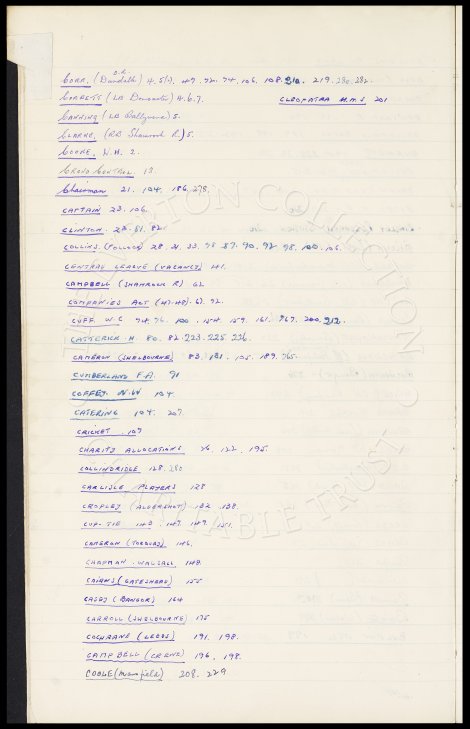 CORR. (Dundalk) O.R. 4. 5(2). 47. 72. 74. 106. 108. 210. 219. 280. 282.
CORBETT (LB Doncaster) 4. 6. 7. CLEOPATRA H.M.S 201
CANNING (LB Ballymena) 5.
CLARKE, (RB Shamrock R.) 5.
COOKE, W.H. 2.
CROWD CONTROL 13.
Chairman 21. 104. 186. 278.
CAPTAIN 23. 106.
CLINTON. 23. 51. 82.
COLLINS. (POLLOCK) 28. 31. 33. 78. 87. 90. 92. 98. 100. 106.
CENTRAL LEAGUE (VACANCY) 41.
CAMPBELL (SHAMROCK R) 62
COMPANIES ACT (47-48). 67. 72.
CUFF. W.C. 74. 76. 100. 154. 159. 161. 167. 200. 212.
CATTERICK H. 80. 82. 223. 225. 226.
CAMERON (SHELBOURNE) 83. 101. 105. 189. 265.
CUMBERLAND F.A. 91
COFFEY. W.W. 104
CATERING 104. 207
CRICKET. 107
CHARITY ALLOCATIONS 76. 122. 195.
COLLINDRIDGE 128. 280
CARLISLE PLAYERS 128
CROPLEY (ALDERSHOT) 132. 138.
CUP-TIE 140. 147. 149. 151.
CAMERON (TORQUAY) 146.
CHAPMAN. WALSALL 148.
CAIRNS (GATESHEAD) 155
CASEY (BANGOR) 164
CARROLL (SHELBOURNE) 175
COCHRANE (LEEDS) 191. 198.
CAMPBELL (CREWE) 196. 198.
COOLE (Mansfield) 208. 229